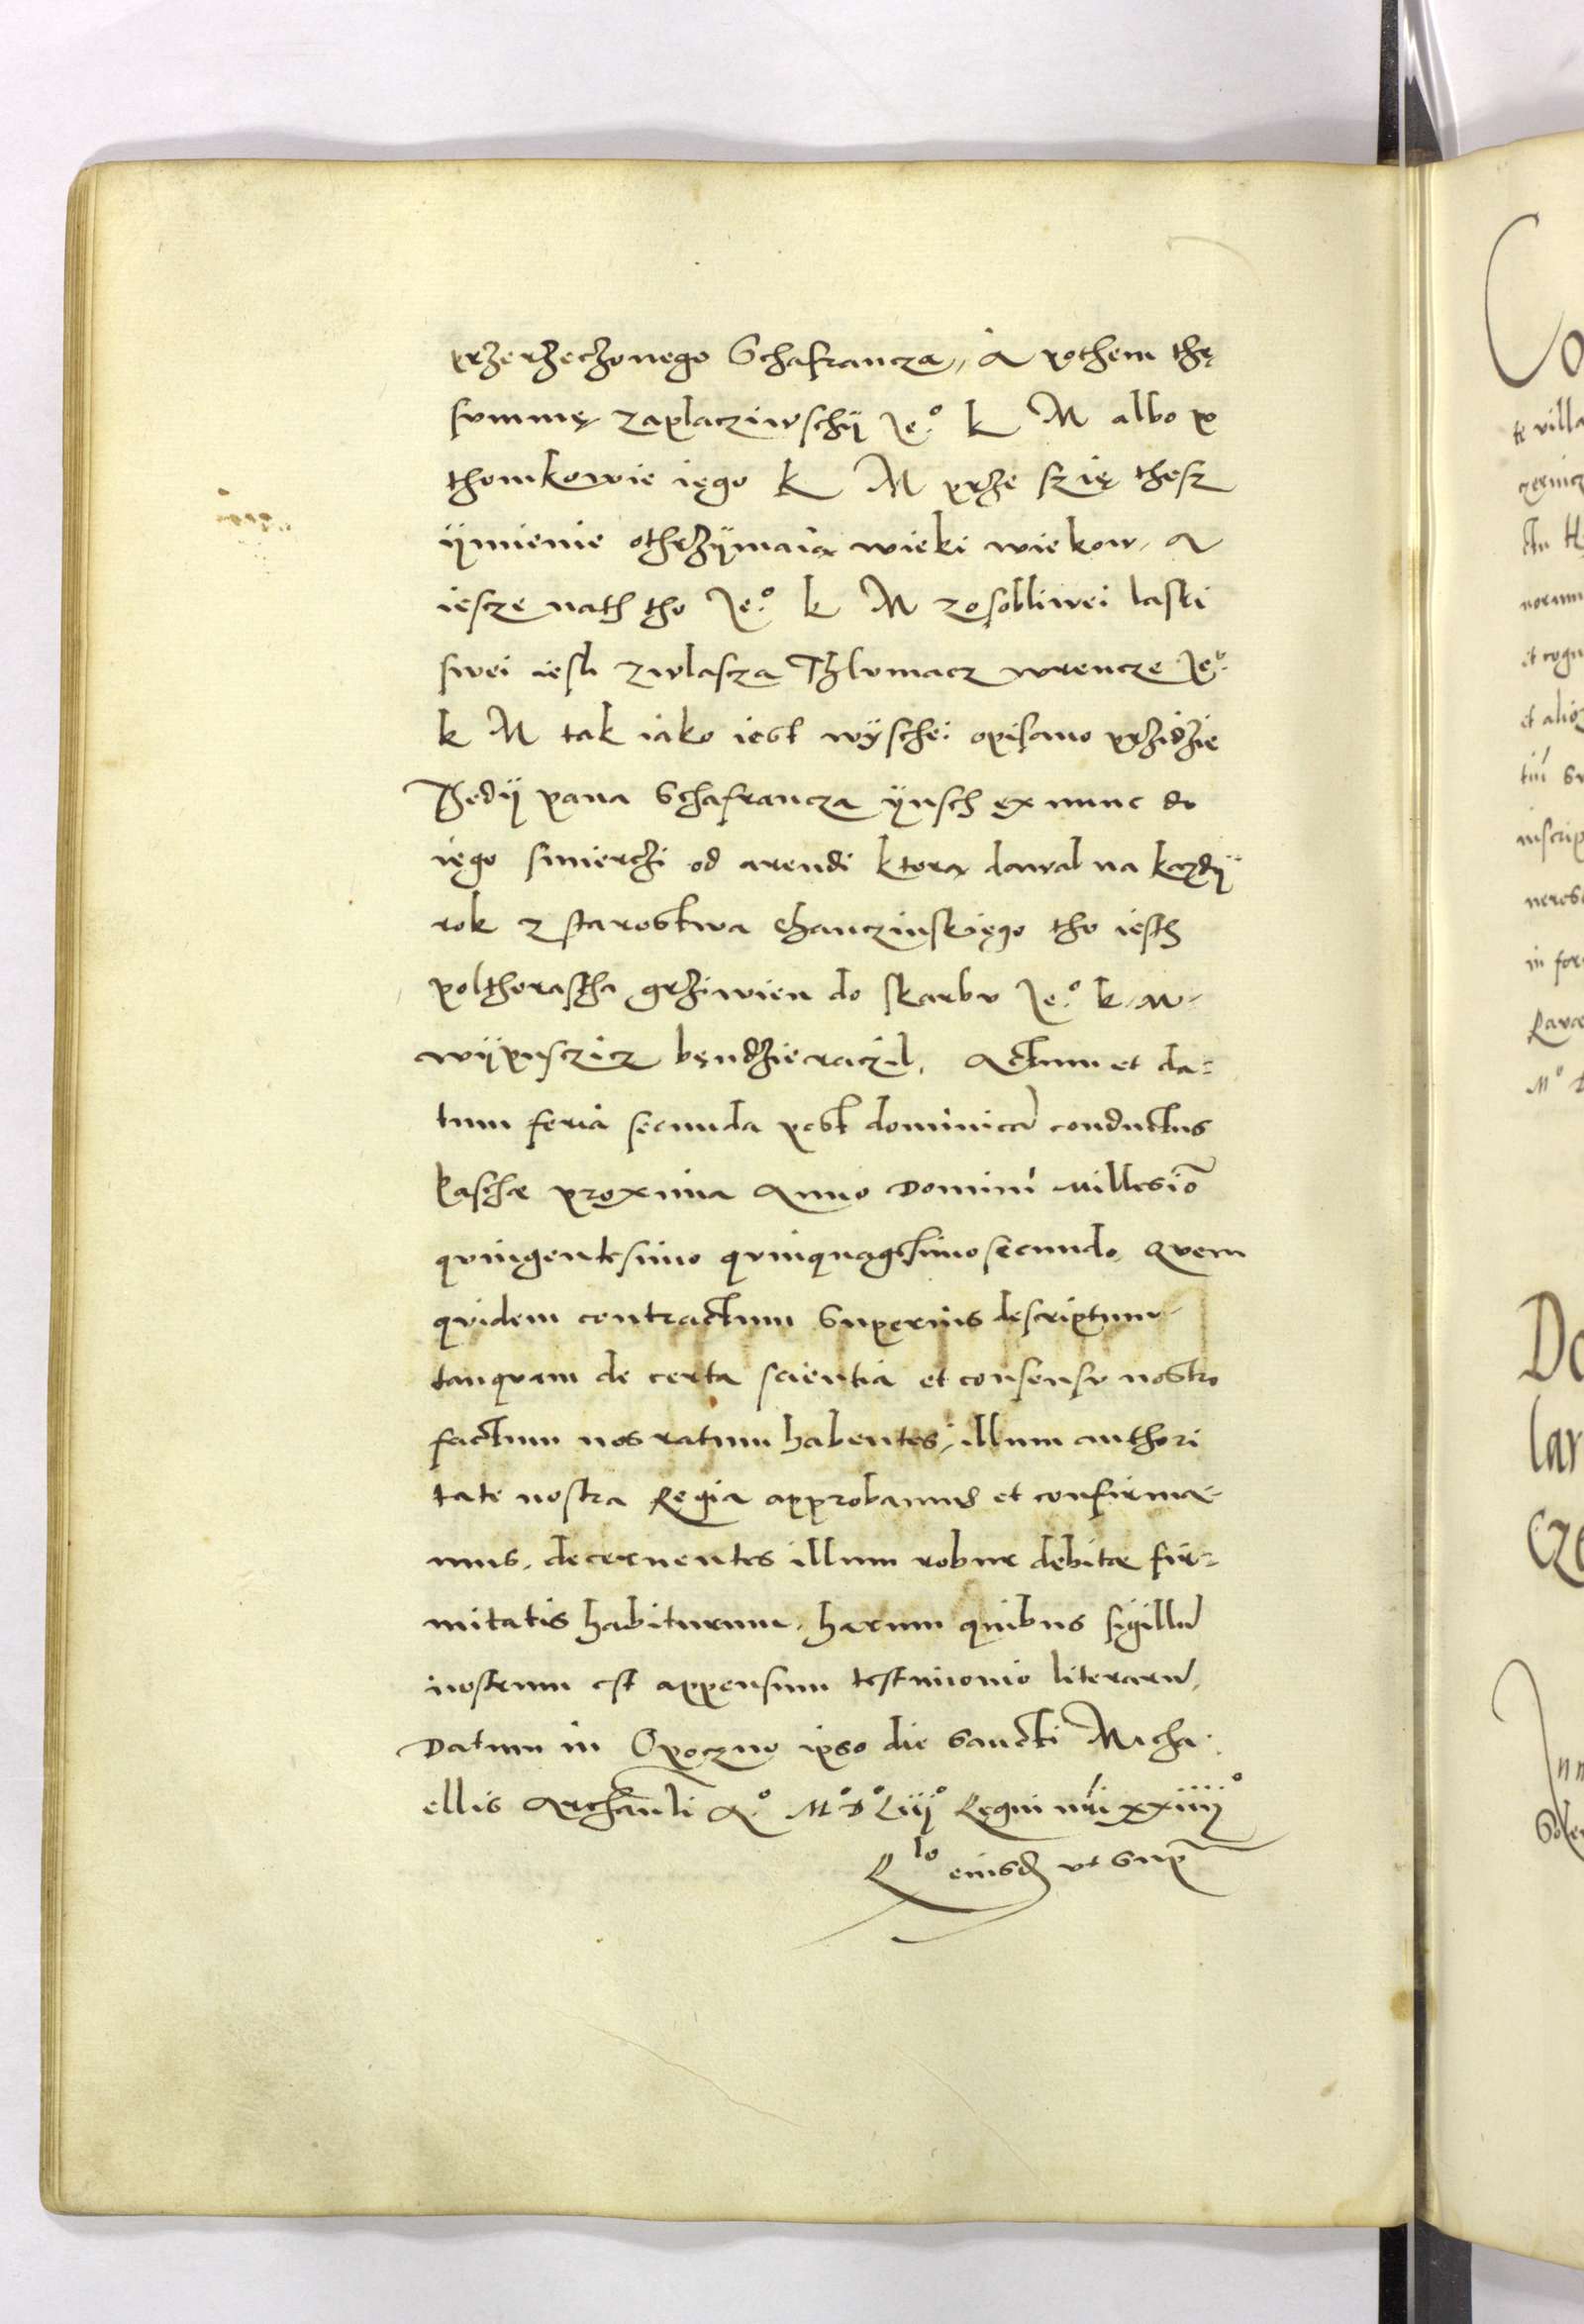 przerzeczonego Schafrancza, A pothem thę
summę zaplacziwschÿ Je.º k M albo p
thomkowie iego k M prze szię thesz
ÿmienie othrzÿmaia wieki wiekow, A
iescze nath tho Je.º k M zosobliwei laski
swei iesli zwlascza Thlvmacz wrencze Je.º
k M tak iako iest wÿschei opisano prżidzie
Thedÿ pana Schafrancza ÿnsch ex nunc do
iego smierczi od arendi ktora dawal na kazdÿ
rok z starostwa Chanczinskiego tho iesth
polthorastha grziwien do skarbv Je.º k M
wÿpusczicz bendzie raczil. Actum et da=
tum feria secunda post dominica conductus
Paschæ proxima Anno Domini Millesio
quingentesimo quinquagesimo secundo, Quem
quidem contractum superius descriptum
tanquam de certa scientia et consensu nostro
factum nos ratum habentes, illum authori
tate nostra Regia approbamus et confirma=
mus, decernentes illum robur debitæ fir=
mitatis habiturum, harum quibus sigillu
nostrum est appensum testimonio literaru,
Datum in Opoczno ipso die Sancti Micha
ellis Archanli Aº. Mº Dº Liijº Regni nri xxiiijº
Rlo eiusd ut sup
Co
te villa
norum
et cogn
et alio
inscrip
in for
Mº D
Do
lar
Cze